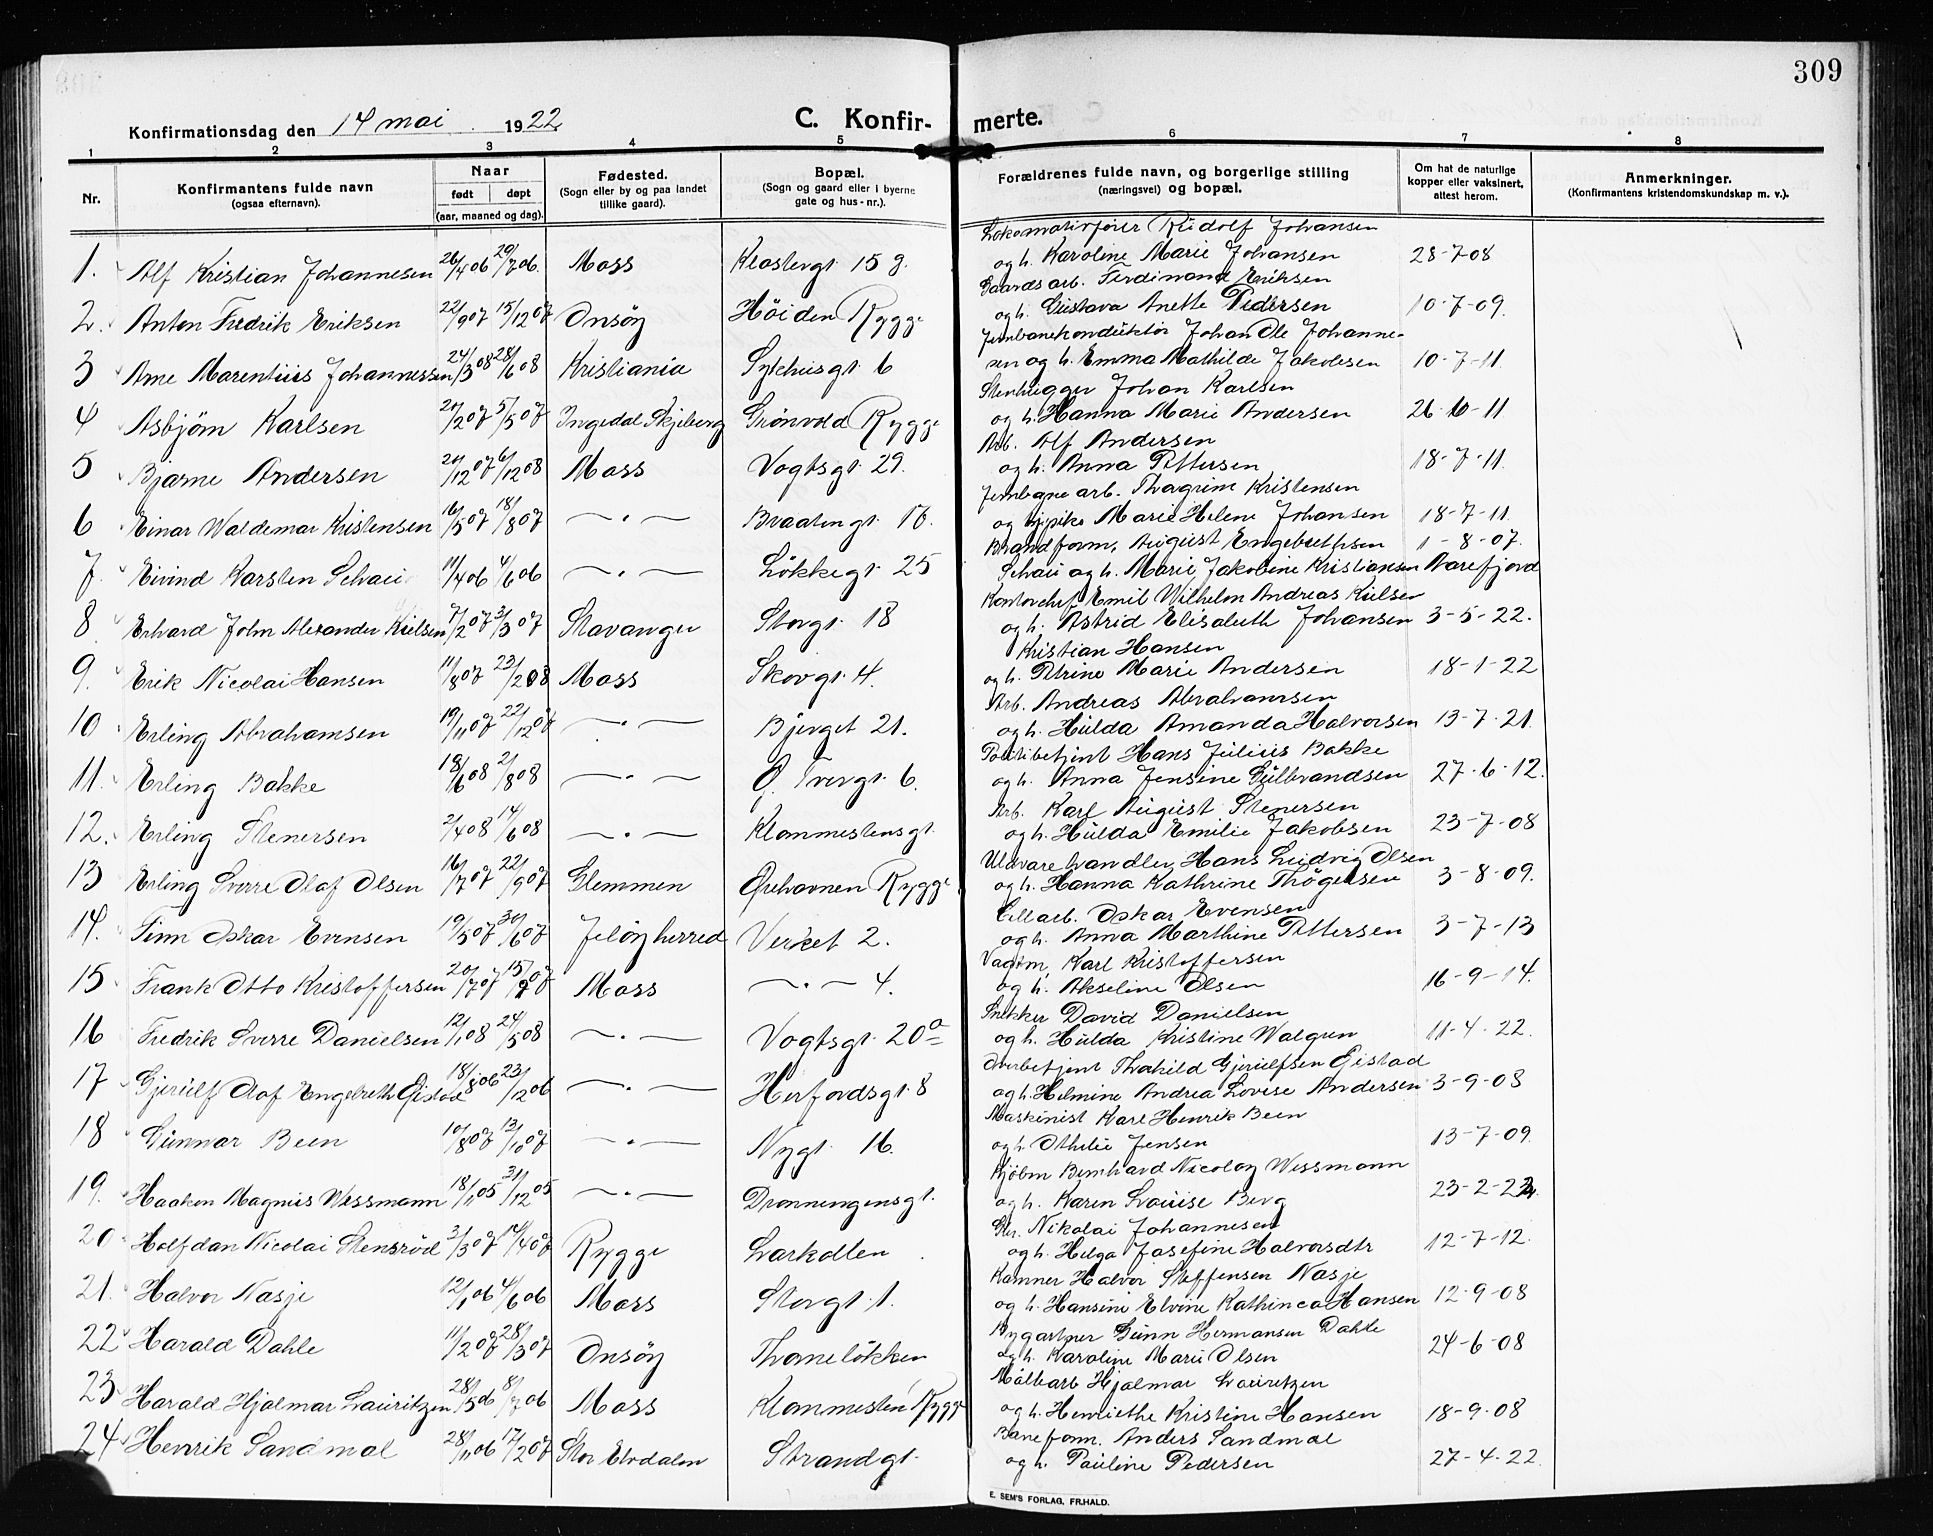 309
Konfirmationsdag den 14 mai 1922
C. Konfir- merte.
1 2 3 4 5 6 7 8
Nr.
Konfirmantens fulde navn
(ogsaa efternavn).
Naar
født døpt
(aar, maaned og dag).
Fødested.
(Sogn eller by og paa landet
tillike gaard).
Bopæl.
(Sogn og gaard eller i byerne
gate og hus-nr.).
Forældrenes fulde navn, og borgerlige stilling
(næringsvei) og bopæl.
Om hat de naturlige
kopper eller vaksinert,
attest herom.
Anmerkninger.
(Konfirmantens kristendomskundskap m. v.).
Lokomotivfører Rudolf Johansen
1. Alf Kristian Johannesen 26/4 06 29/7 06. Moss Klostergt. 15 g. og h. Karoline Marie Johansen 28-7-08
Gaardsarb. Ferdinand Eriksen
2. Anton Fredrik Eriksen 22/9 07 15/12 07 Onsöy Höiden Rygge og h. Gustava Anette Pedersen 10-7-09.
Jernbanekonduktör Johan Ole Johanne-
3 Arne Marentius Johannessen 24/3 08 28/6 08 Kristiania Sykhusgt. 6 sen og h. Emma Mathilde Jakobsen 10-7-11.
Stenhugger Johan Karlsen
4 Asbjörn Karlsen 21/2 07 5/5 07 Ingedal Skjeberg Grönvold Rygge og h. Hanna Marie Andersen 26-10-11
Arb. Alf Andersen
5 Bjarne Andersen 21/12 07 6/12 08 Moss Vogtsgt. 29. og h. Anna Pettersen 18-7-11.
Jernbanearb. Thorgrim Kristensen
6 Einar Waldemar Kristensen 16/5 07 18/8 07 —.— Braatengt. 16. og Marie Helene Johansen 18-7-11.
Brandform. August Engebrethsen 1-8-07.
7. Eivind Karsten Schau 11/4 06 4/6 06 —.— Lökkegt. 25 Schau og h. Marie Jakobine Kristiansen Narefjord
Kontorchef Emil Wilhelm Andreas Kielsen
8. Erhard John Alexander Kielsen 7/2 07 31/3 07 Stavanger Storgt. 18 og h. Astrid Elisabeth Johansen 3-5-22.
Kristian Hansen
9. Erik Nicolai Hansen 11/8 07 23/2 08 Moss Skovgt. 4. og h. Petrine Marie Andersen 18-1-22
Arb. Andreas Abrahamsen
10 Erling Abrahamsen 19/11 07 22/12 07 —.— Bjerget 21. og h. Hulda Amanda Halvorsen 13-7-21.
Politibetjent Hans Julius Bakke
11. Erling Bakke 18/6 08 2/8 08 —.— Ö. Tvergt. 6. og h. Anna Jensine Gulbrandsen 27-6-12.
Arb. Karl August Stenersen
12. Erling Stenersen 2/4 08 14/6 08 —.— Klommestensgt. og h. Hulda Emilie Jakobsen 23-7-08
Uldvarehandler Hans Ludvig Olsen
13 Erling Sverre Olaf Olsen 16/7 07 22/9 07 Glemmen Örehavnen Rygge og h. Hanna Kathrine Thögersen 3-8-09.
Cellarb. Oskar Evensen
14. Finn Oskar Evensen 19/5 07 30/6 07 Jelöy herred Verket 2. og h. Anna Marthine Pettersen 3-7-13
Vagtm. Karl Kristoffersen
15 Frank Otto Kristoffersen 20/7 07 15/9 07 Moss —.— 4. og h. Akseline Olsen 16-9-14.
Snekker David Danielsen
16 Fredrik Sverre Danielsen 12/1 08 24/5 08 —.— Vogtsgt. 20a og h. Hulda Kristine Walgren 11-4-22.
Overbetjent Thorkild Gjerulfsen Gistad
17 Gjerulf Olaf Engelreth Gistad 18/8 06 23/12 06 —.— Herfordsgt. 8 og h. Helmine Andrea Lovise Andersen 3-9-08
Maskinist Karl Henrik Been
18 Gunnar Been 10/8 07 13/10 07 —.— Nygt. 16. og h. Othilie Jensen 13-7-09.
Kjöbm Bernhard Nicolay Wessmann
19. Haakon Magnus Wessmann 18/11 05 31/12 05 —.— Dronningensgt. og h. Karen Louise Berg 23-2-22.
Nikolai Johannesen
20 Halfdan Nicolai Stensröd 3/3 07 14/4 07 Rygge Larkollen og h. Helga Josefine Halvorsdtr 12-7-12.
Kamner Halvor Steffensen Nasje
21. Halvor Nasje 12/1 06 4/6 06 Moss Storgt. 1. og h. Hansine Elvine Kathinca Hansen 12-9-08
Bygartner Gunn Hermansen Dahle
22 Harald Dahle 11/2 07 28/3 07 Onsöy Thornelökken og h. Karoline Marie Olsen 24-6-08
Hjalmar Lauritzen
23 Harald Hjalmar Lauritzen 28/5 06 8/7 06 Moss Klommesten Rygge og h. Henriethe Kristine Hansen 18-9-08
Baneform. Anders Sandmol
24 Henrik Sandmol 28/11 06 17/2 07 Stor Elvdalen Strandgt. og h. Pauline Pedersen 27-4-22.
E. SEM'S FORLAG, FR.HALD.